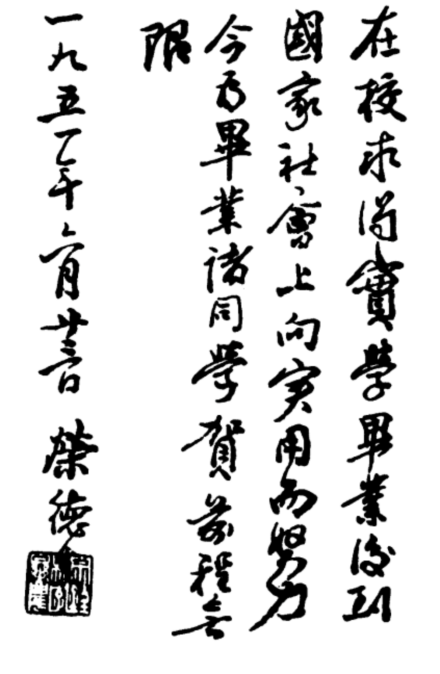 在校求得實學畢業後到
國家社會上向実用而努力
今為畢業諸同學賀前程無
限
一九五一年六月廿三日 榮德生